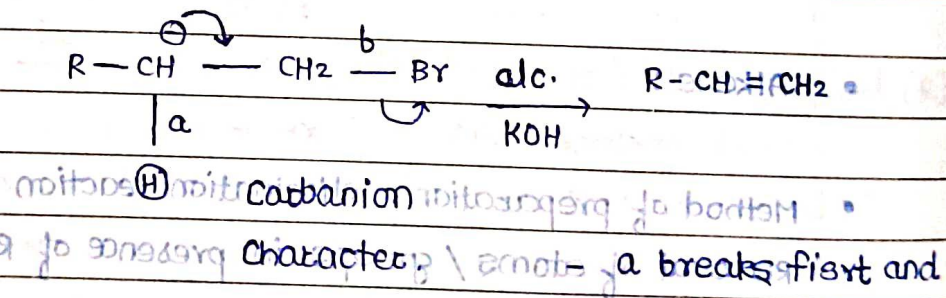 ⊖ b
R — CH — CH2 — Br alc. R - CH = CH2
| a KOH
Ⓗ carbanion
character a breaks fisrt and